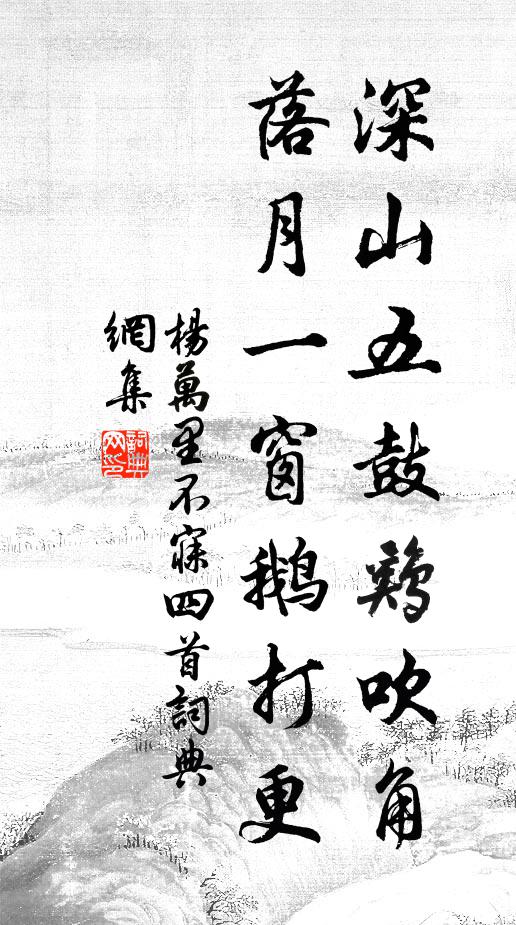 深山五鼓鷄吹角
落月一窗鵝打更
楊萬里不寐四首詞典
網集
詞典
网印